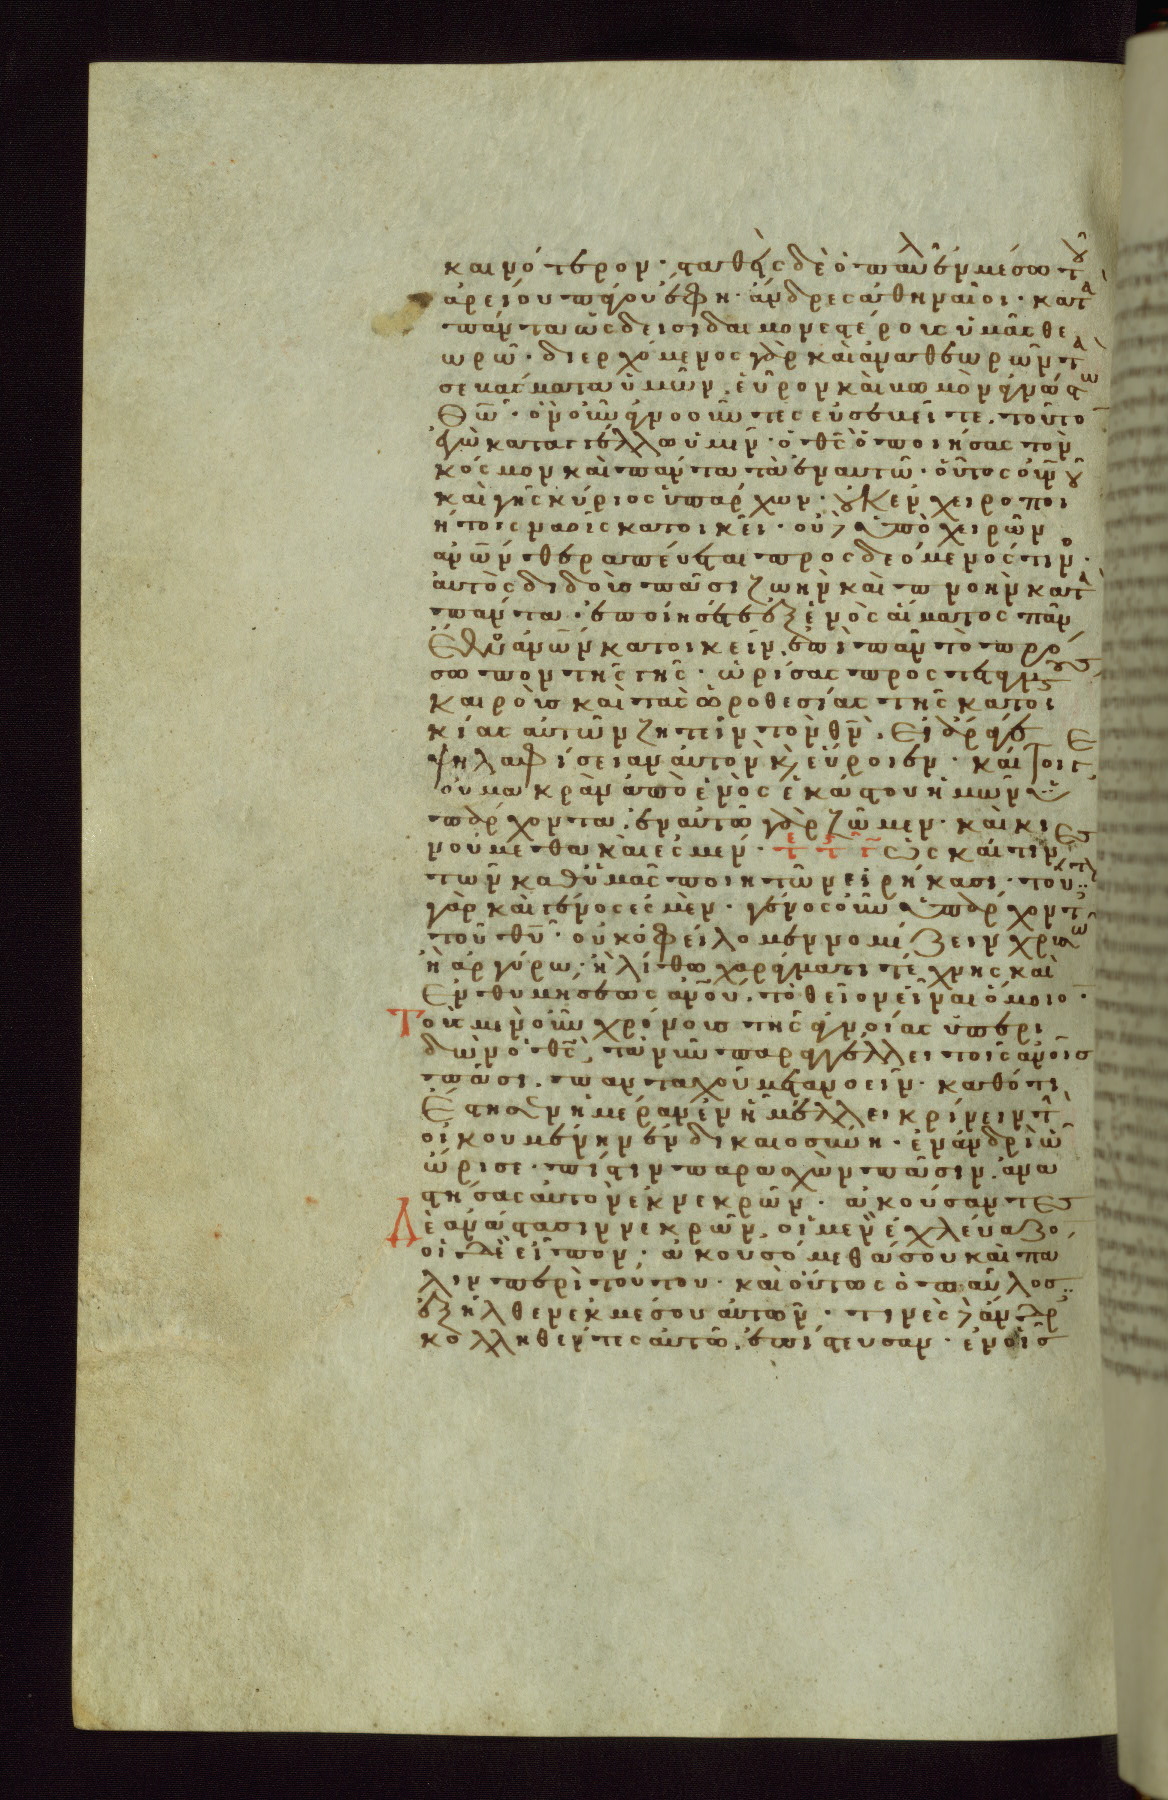 καινότερον· σταθεὶς δὲ ὁ παῦλ ἐν μέσω τοῦ
ἀρείου πάγου ἔφη· ἄνδρες ἀθηναῖοι· κατὰ
πάντα ὡς δεισιδαιμονεστέρους ὑμᾶς θε
ωρῶ· διερχόμενος γὰρ καὶ ἀναθεωρῶν τὰ
σεβάσματα ὑμῶν, εὗρον καὶ βωμὸν
θῶ· ὃν οὖν ἀγνοοῦντες εὐσεβεῖτε, τοῦτο
ἐγὼ καταγγέλλω ὑμῖν· ὁ θς ὁ ποιήσας τὸν
κόσμον καὶ πάντα τὰ ἐν αυτῶ· οὗτος οὐνου
καὶ γῆς κύριος ὑπάρχων· οὐκ ἐν χειροποι
ήτοις ναοῖς κατοικεῖ· οὐδὲ ὑπὸ χειρῶν
ανῶν θεραπέυεται προσδεόμενός τινο·
ἀυτὸς διδοὺς πᾶσι ζωὴν καὶ πνοὴν κατὰ
πάντα· ἐποίησέ τε ἐξ ἑνὸς αἵματος πᾶν
ἔθνος ἀνῶν κατοικεῖν ἐπὶ πᾶν τὸ πρό
σωπον τῆς γῆς· ὁρίσας προστεταγμένους
καιροὺς καὶ τὰς ὁροθεσίας τῆς κατοι
κίας αὐτῶν ζητεῖν τὸν θν· εἰ ἄρά γε
ψηλαφήσειαν ἀυτὸν καὶ εὕροιεν· καίτοιγε
οὐ μακρὰν ἀπὸ ἑνὸς ἑκάστου ἡμῶν ὑ
πάρχοντα· ἐν αυτῶ γὰρ ζῶμεν· καὶ κι
νούμεθα καὶ ἐσμέν· ὡς καί τινες
τῶν καθ' ὑμᾶς ποιητῶν εἰρήκασι· τοῦ
γὰρ καὶ γένος ἐσμέν· γένος οὖν ὑπάρχοντ
τοῦ θυ· οὐκ ὀφείλομεν νομίζειν χρυσῶ
ἢ ἀργύρω· ἢ λίθω χαράγματι τέχνης καὶ
ἐνθυμήσεως ανου· τὸ θεῖον εἶναι ὅμοιο·
Τοὺς μὲν οὖν χρόνους τῆς ἀγνοίας ὑπερι
δὼν ὁ θς, τὰ νῦν παραγγέλλει τοῖς ανοις
πᾶσι· πανταχοῦ μετανοεῖν· καθότι
ἔστησεν ἡμέραν ἐν ᾗ μέλλει κρίνειν τὴν
οἰκουμένην ἐν δικαιοσύνη· ἐν ἀνδρὶ ὧ
ὥρισε· πίστιν παρασχὼν πᾶσιν ἀνα
στήσας αὐτὸν ἐκ νεκρῶν· ἀκούσαντες
Δὲ ἀνάστασιν νεκρῶν, οἱ μὲν ἐχλεύαζο
οἱ δὲ εἶπον· ἀκουσόμεθά σου καὶ πά
λιν περὶ τούτου· καὶ οὕτως ὁ παῦλος
ἐξῆλθεν ἐκ μέσου ἀυτῶν· τινὲς δὲ ἄνδρ
κολληθέντες ἀυτῶ ἐπίστευσαν· ἐν οἷς